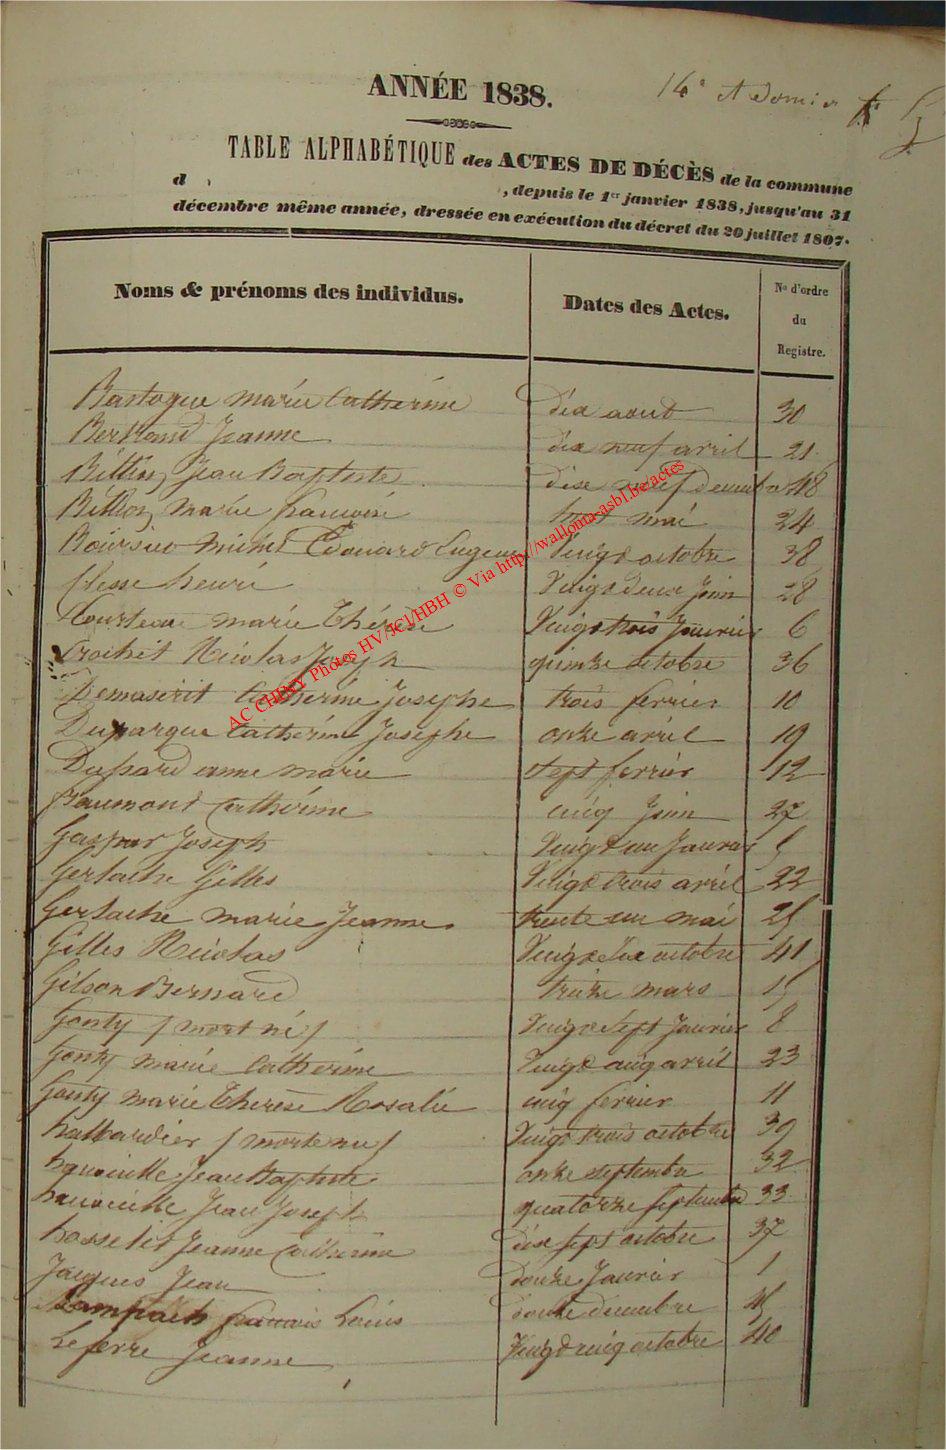 ANNÉE 1838.
TABLE ALPHABÉTIQUE des ACTES DE DÉCÈS de la commune
d , depuis le 1er janvier 1838, jusqu'au 31
décembre même année, dressée en exécution du décret du 20 juillet 1807.
Noms & prénoms des individus. Dates des Actes. No d'ordre du Registre.
Bastogne marie Catherine dix aout 30
Bertrand Jeanne dix neuf avril 21
Billion Jean Baptiste dixe neuf decembre 48
Billion Marie mai 24
Michel Edouard Eugene Vingt octobre 38
Clesse henri Vingt deux Juin 28
Courteau marie Thérèse Vingt trois Janvier 6
Crochet Nicolas Joseph quinze octobre 36
Catherine Josephe trois fevrier 10
Duparque Catherine Josephe onze avril 19
Dussard anne marie sept fevrier 12
Faumont Catherine cinq Juin 27
Gaspar Joseph Vingt un Janvier 5
Gerlache Gilles Vingt trois avril 22
Gerlache marie Jeanne trente un mai 25
Gilles Nicolas Vingt six octobre 41
Gilson Bernard treize mars 15
Gonty / mort né / Vingt sept Janvier 8
Gonty marie Catherine Vingt cinq avril 23
Gonty marie Therese Rosalie cinq fevrier 11
hallbardier / morte née / Vingt trois octobre 39
Jean Baptiste onze septembre 32
Jean Joseph quatorze septembre 33
hosselet Jeanne Catherine dix sept octobre 37
Jacques Jean douze Janvier 1
Lambach francois Louis douze decembre 45
Lefevre Jeanne Vingt cinq octobre 40
AC CHINY Photos HV/JCJ/HBH © Via http://wallonia-asbl.be/actes